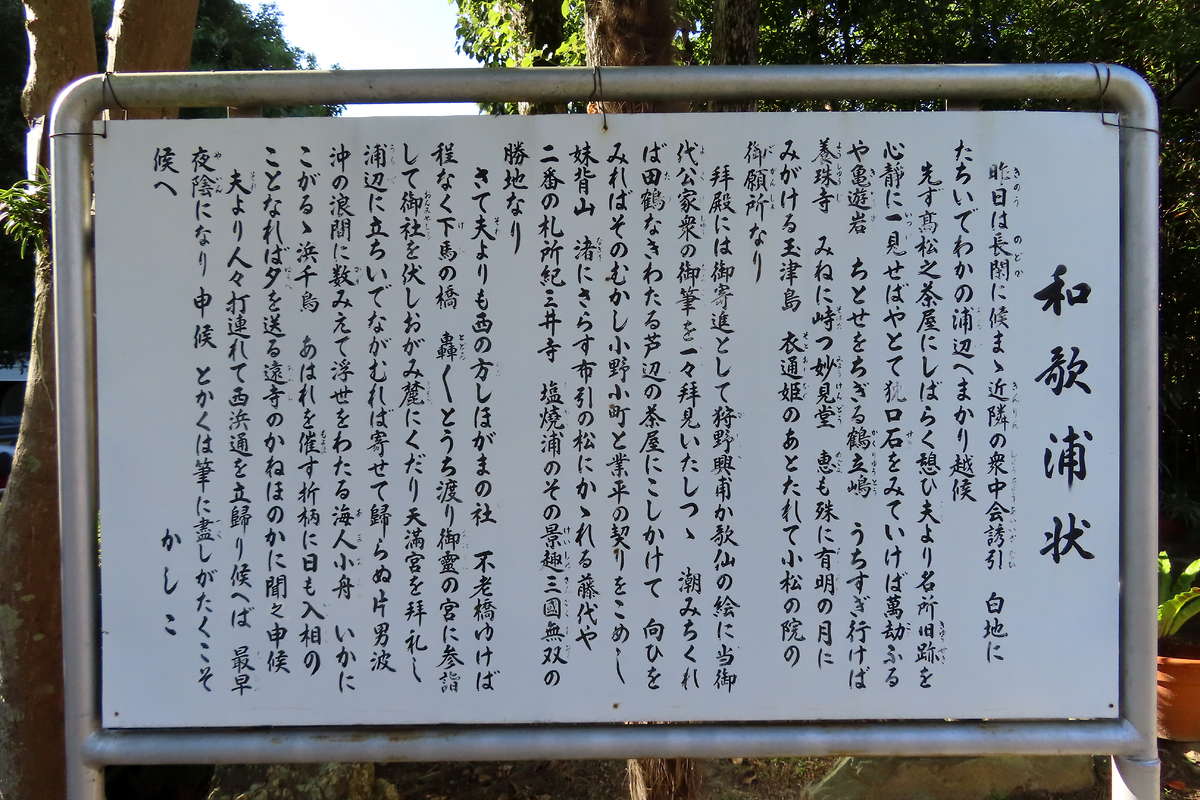 和歌浦状
昨日は長閑に候まゝ近隣の衆中会誘引　白地に
たちいでわかの浦辺へまかり越候
先ず髙松之茶屋にしばらく憩ひ夫より名所旧跡を
心静に一見せばやとて 口石をみていけば萬劫ふる
や亀遊岩　ちとせをちぎる鶴立嶋　うちすぎ行けば
養珠寺　みねに峙つ妙見堂　恵も殊に有明の月に
みがける玉津島　衣通姫のあとたれて小松の院の
御願所なり
拜殿には御寄進として狩野興甫か歌仙の絵に当御
代公家衆の御筆を一々拜見いたしつゝ　潮みちくれ
ば田鶴なきわたる芦辺の茶屋にこしかけて　向ひを
みればそのむかし小野小町と業平の契りをこめし
妹背山　渚にさらす布引の松にかゝれる藤代や
二番の札所紀三井寺　塩焼浦のその景趣三國無双の
勝地なり
さて夫よりも西の方しほがまの社　不老橋ゆけば
程なく下馬の橋　轟く／＼とうち渡り御靈の宮に参詣
して御社を伏しおがみ麓にくだり天満宮を拜礼し
浦辺に立ちいでながむれば寄せて歸らぬ片男波
沖の浪間に数みえて浮世をわたる海人小舟　いかに
こがるゝ浜千鳥　あはれを催す折柄に日も入相の
ことなれば夕を送る遠寺のかねほのかに聞え申候
夫より人々打連れて西浜通を立歸り候へば　最早
夜陰になり申候　とかくは筆に盡しがたくこそ
候へ　かしこ